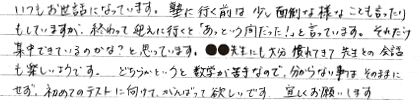 いつもお世話になっています。塾に行く前は少し面倒な様なことも言ったり
もしていますが、終わって迎えに行くと「あっという間だった!」と言っています。それだけ
集中できているのかな?と思っています。●●先生にも大分慣れてきて先生との会話
も楽しいようです。どちらかというと数学が苦手なので、分からない事はそのままに
せず、初めてのテストに向けて、がんばって欲しいです。宜しくお願いします